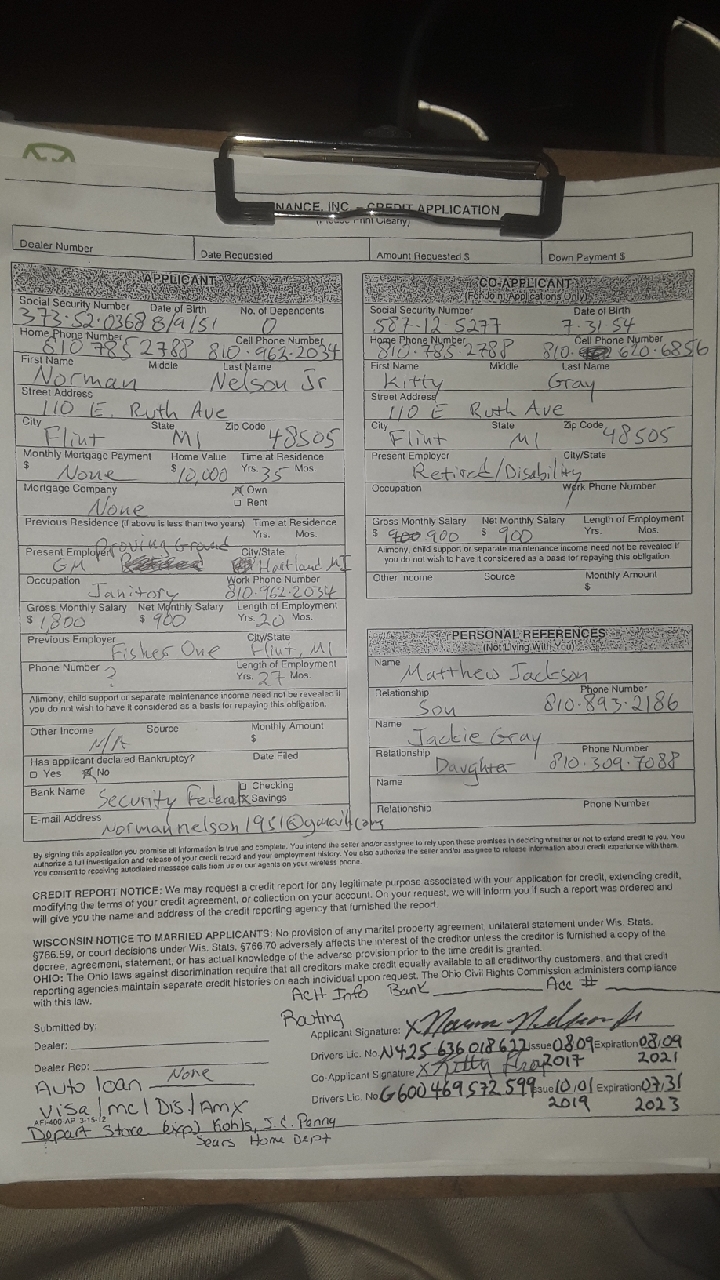 NANCE, INC. – CREDIT APPLICATION
(Please Print Clearly)
Dealer Number Date Requested Amount Requested $ Down Payment $
APPLICANT
Social Security Number Date of Birth No. of Dependents
373-52-0368 8/9/51 0
Home Phone Number Cell Phone Number
810 785 2788 810-962-2034
First Name Middle Last Name
Norman Nelson Jr
Street Address
110 E. Ruth Ave
City State Zip Code
Flint MI 48505
Monthly Mortgage Payment Home Value Time at Residence
$ None $10,000 Yrs. 35 Mos.
Mortgage Company Own
None Rent
Previous Residence (if above is less than two years) Time at Residence
Yrs. Mos.
Proving Ground
Present Employer City/State
GM Hartland MI
Occupation Work Phone Number
Janitory 810-962-2034
Gross Monthly Salary Net Monthly Salary Length of Employment
$ 1,800 $ 900 Yrs. 20 Mos.
Previous Employer City/State
Fisher One Flint, MI
Phone Number Length of Employment
? Yrs. 27 Mos.
Alimony, child support or separate maintenance income need not be revealed if
you do not wish to have it considered as a basis for repaying this obligation.
Other Income Source Monthly Amount
N/A $
Has applicant declared Bankruptcy? Date Filed
Yes No
Bank Name Checking
Security Federal Savings
E-mail Address
normannelson1951@gmail.com
CO-APPLICANT
(For Joint Applications Only)
Social Security Number Date of Birth
587-12 5277 7-31 54
Home Phone Number Cell Phone Number
810-785 2788 810- 620-6856
First Name Middle Last Name
Kitty Gray
Street Address
110 E Ruth Ave
City State Zip Code
Flint MI 48505
Present Employer City/State
Retired/Disability
Occupation Work Phone Number
Gross Monthly Salary Net Monthly Salary Length of Employment
$ 900 $ 900 Yrs. Mos.
Alimony, child support or separate maintenance income need not be revealed if
you do not wish to have it considered as a basis for repaying this obligation.
Other Income Source Monthly Amount
$
PERSONAL REFERENCES
(Not Living With You)
Name
Matthew Jackson
Relationship Phone Number
Son 810-893-2186
Name
Jackie Gray
Relationship Phone Number
Daughter 810-309-7088
Name
Relationship Phone Number
By signing this application you promise all information is true and complete. You intend the seller and/or assignee to rely upon these promises in deciding whether or not to extend credit to you. You
authorize a full investigation and release of your credit record and your employment history. You also authorize the seller and/or assignee to release information about credit experience with them.
You consent to receiving autodialed message calls from us or our agents on your wireless phone.
CREDIT REPORT NOTICE: We may request a credit report for any legitimate purpose associated with your application for credit, extending credit,
modifying the terms of your credit agreement, or collection on your account. On your request, we will inform you if such a report was ordered and
will give you the name and address of the credit reporting agency that furnished the report.
WISCONSIN NOTICE TO MARRIED APPLICANTS: No provision of any marital property agreement, unilateral statement under Wis. Stats.
§766.59, or court decisions under Wis. Stats. §766.70 adversely affects the interest of the creditor unless the creditor is furnished a copy of the
decree, agreement, statement, or has actual knowledge of the adverse provision prior to the time credit is granted.
OHIO: The Ohio laws against discrimination require that all creditors make credit equally available to all creditworthy customers, and that credit
reporting agencies maintain separate credit histories on each individual upon request. The Ohio Civil Rights Commission administers compliance
with this law.
ACH Info Bank Acc #
Routing
Submitted by:
Dealer:
Dealer Rep:
Applicant Signature: X Norman Nelson Jr
Drivers Lic. No N425 636 018 622 Issue 08 09 2017 Expiration 08/09 2021
Co-Applicant Signature X Kitty Gray
Drivers Lic. No G600 469 572 599 Issue 10/01 2019 Expiration 07/31 2023
Auto loan None
Visa / mc / Dis / Amx
AF-400 AP 3-15-12
Depart Store (exp) Kohls, J.C. Penny
Sears Home Dept